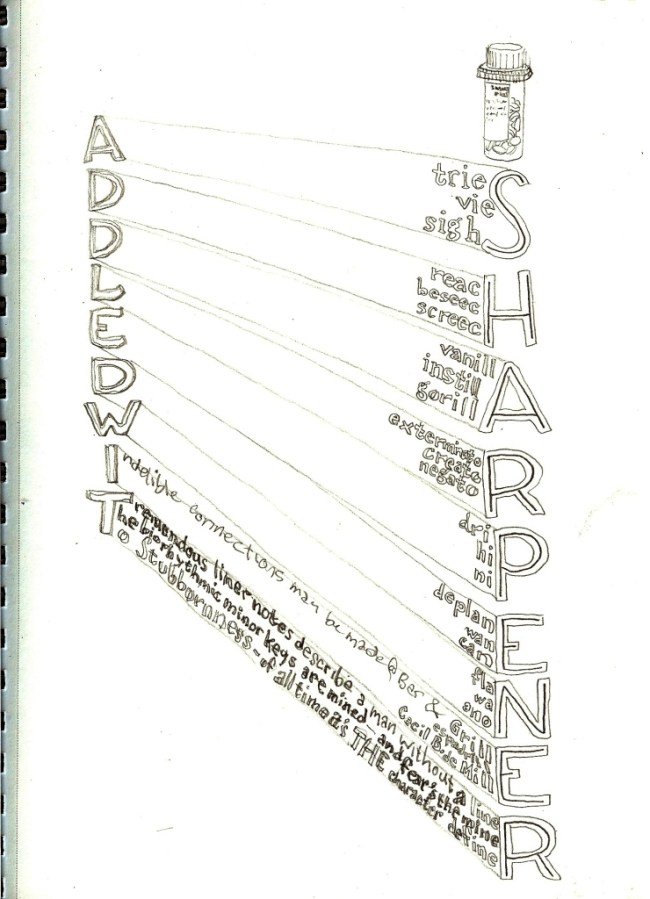 ADDLEDWIT
trie
vie
sigh
S
reac
beseec
screec
H
vanill
instill
gorill
A
exterminato
creato
negato
R
dri
hi
ni
P
deplan
wan
can
E
fla
wa
ano
N
E
R
Indelible connections may be made @ Bar & Grill
Cecil B. de Mill
Tremendous liner notes describe a man without a line
The biorhythmic minor keys are mined - and fear's the mine
To Stubbornness - of all time as THE character define